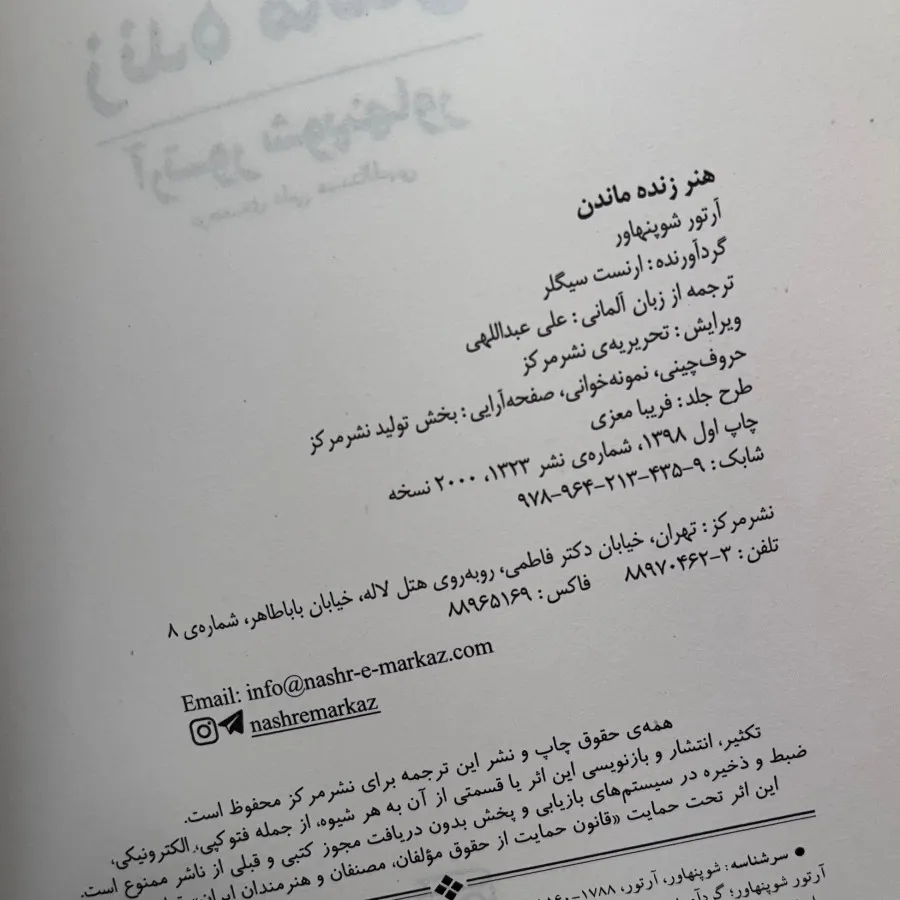 زنده
آرتور شوپنهاور
هنر زنده ماندن
آرتور شوپنهاور
گردآورنده: ارنست سیگلر
ترجمه از زبان آلمانی: علی عبداللهی
ویرایش: تحریریه‌ی نشرمرکز
حروف‌چینی، نمونه‌خوانی، صفحه‌آرایی: بخش تولید نشرمرکز
طرح جلد: فریبا معزی
چاپ اول ۱۳۹۸، شماره‌ی نشر ۱۳۲۳، ۲۰۰۰ نسخه
شابک: ۹-۴۳۵-۲۱۳-۹۶۴-۹۷۸
نشرمرکز: تهران، خیابان دکتر فاطمی، روبه‌روی هتل لاله، خیابان باباطاهر، شماره‌ی ۸
تلفن: ۳-۸۸۹۷۰۴۶۲ فاکس: ۸۸۹۶۵۱۶۹
Email: info@nashr-e-markaz.com
nashremarkaz
همه‌ی حقوق چاپ و نشر این ترجمه برای نشرمرکز محفوظ است.
تکثیر، انتشار و بازنویسی این اثر یا قسمتی از آن به هر شیوه، از جمله فتوکپی، الکترونیکی،
ضبط و ذخیره در سیستم‌های بازیابی و پخش بدون دریافت مجوز کتبی و قبلی از ناشر ممنوع است.
این اثر تحت حمایت «قانون حمایت از حقوق مؤلفان، مصنفان و هنرمندان ایران»
● سرشناسه: شوپنهاور، آرتور، ۱۷۸۸-
آرتور شوپنهاور؛